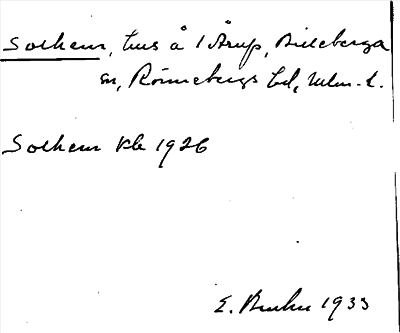 Solhem, hus å 1 Årup, Billeberga
sn, Rönnebergs hd, Mlm. l.
Solhem kk 1926
E. 1933